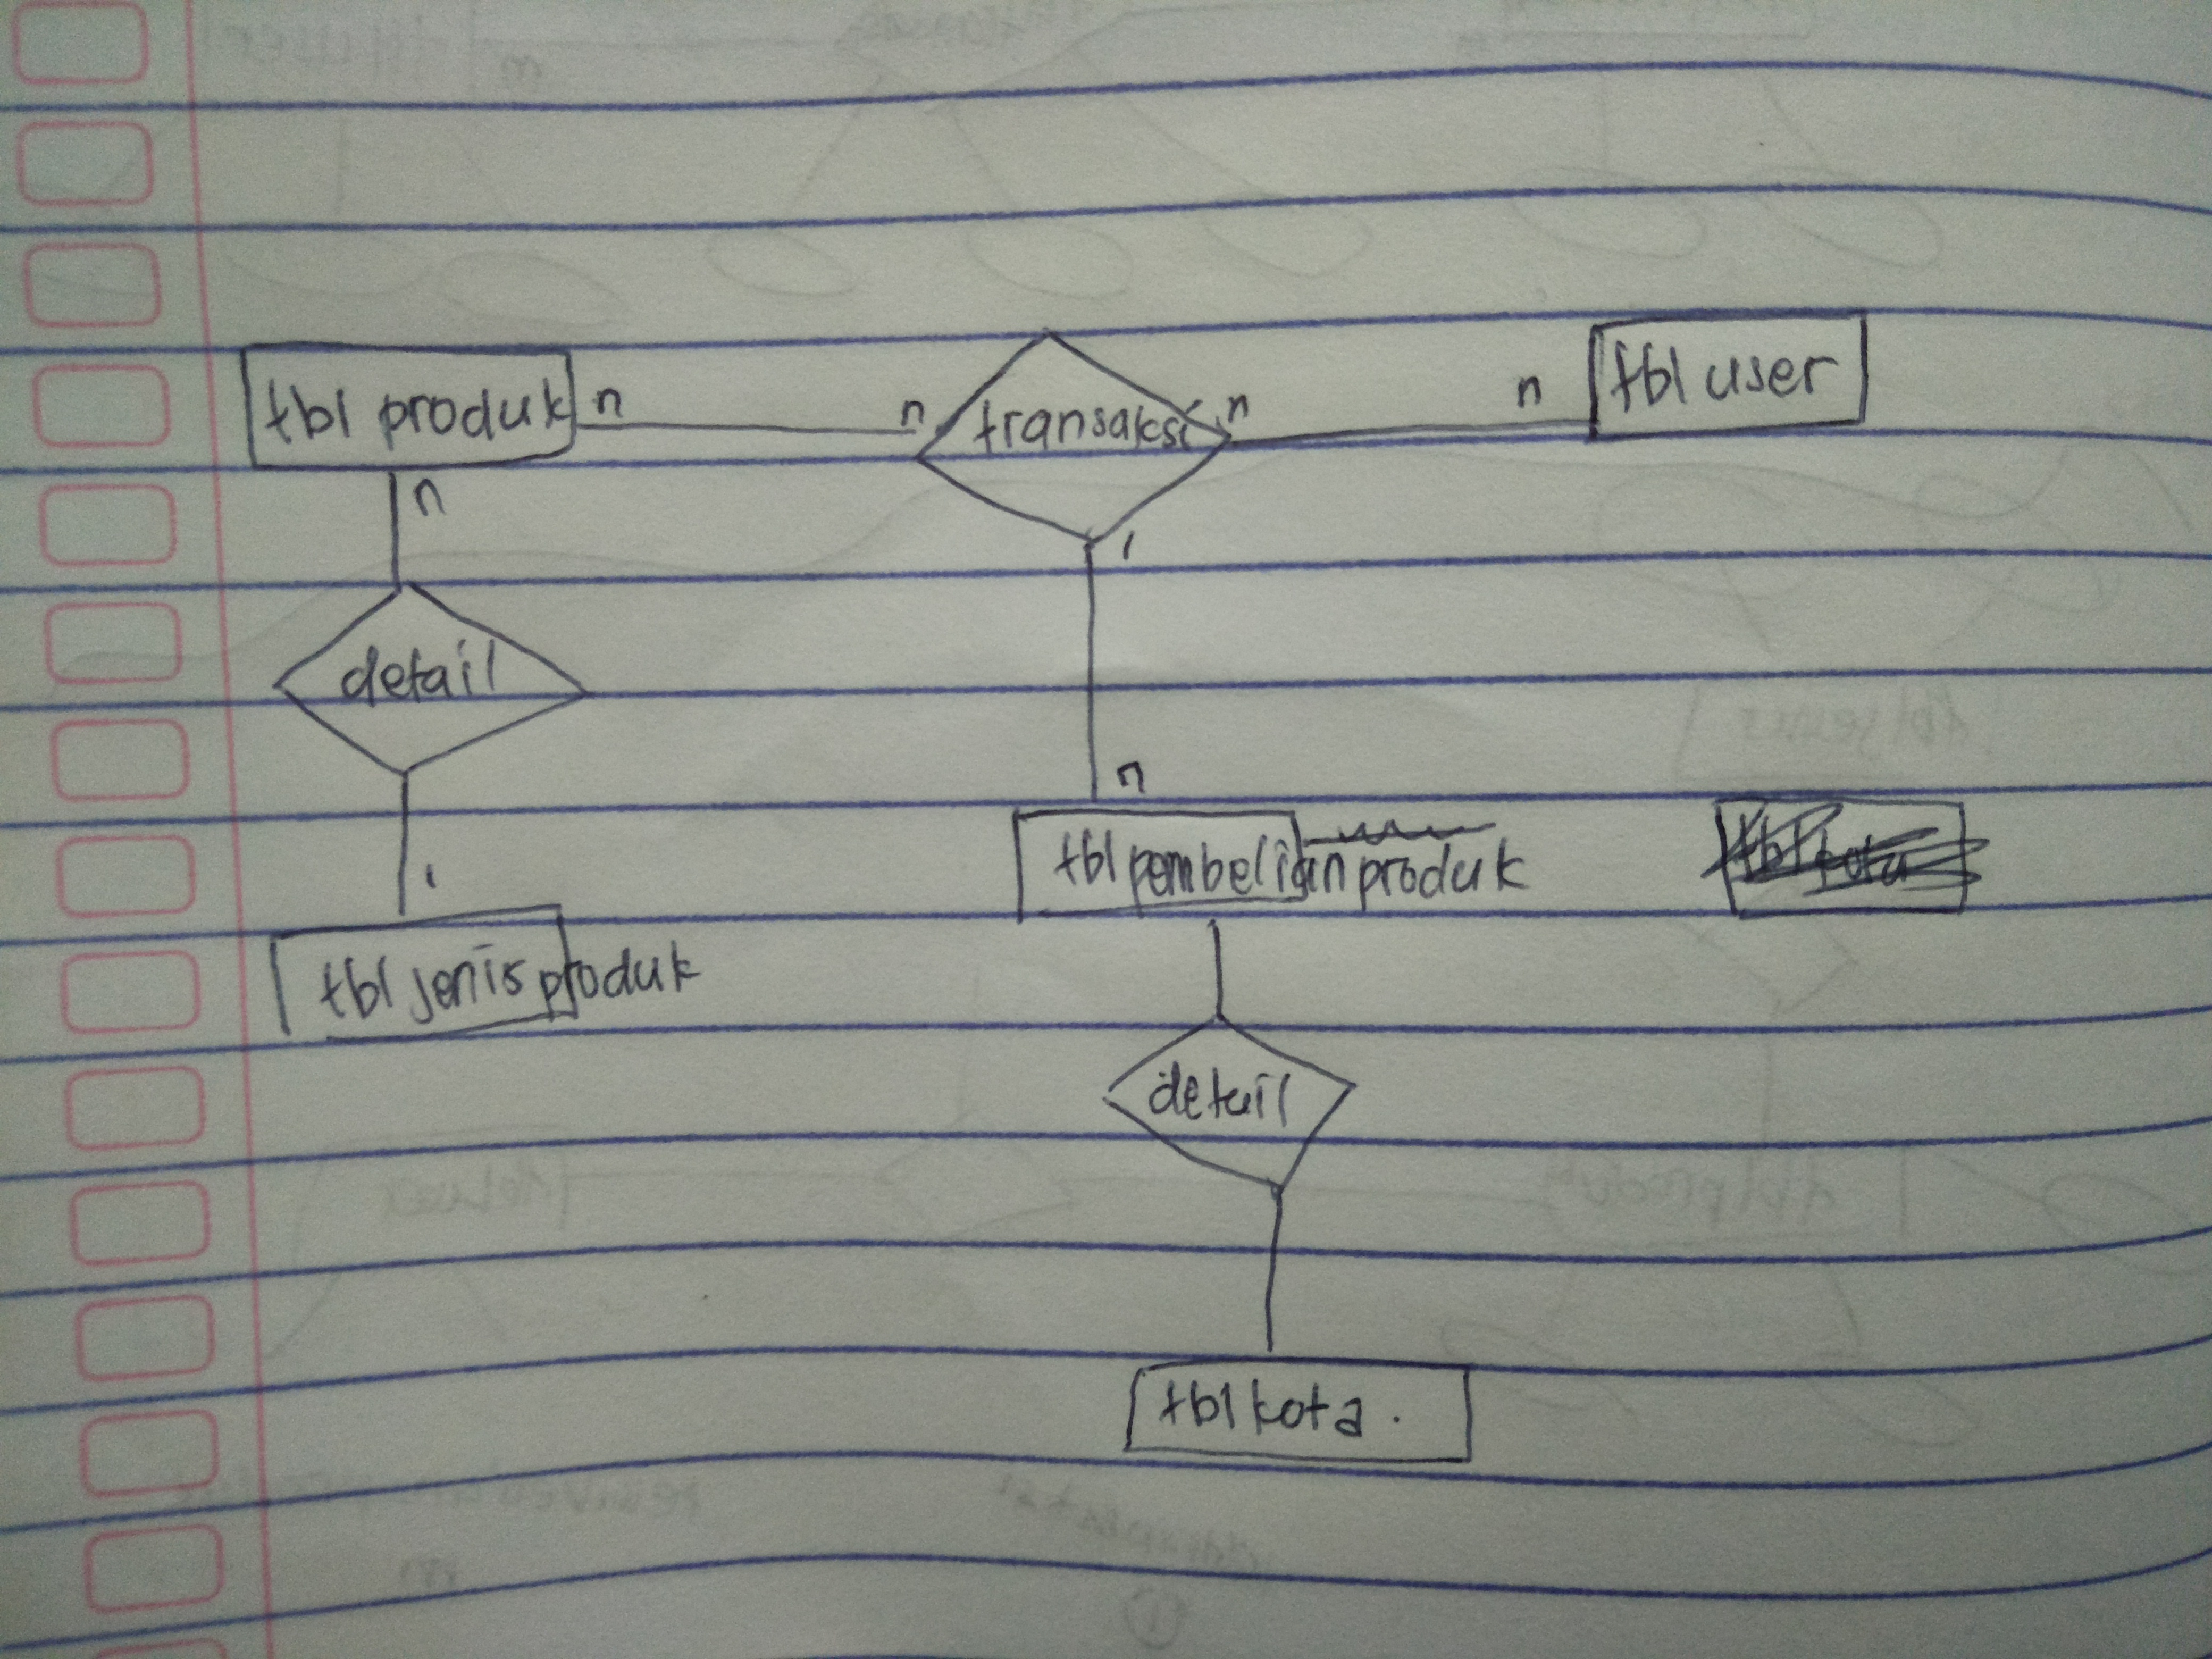 tbl produk n n transaksi n n tbl user
n 1
detail
n
1 tbl pembelian produk
tbl jenis produk
detail
tbl kota .